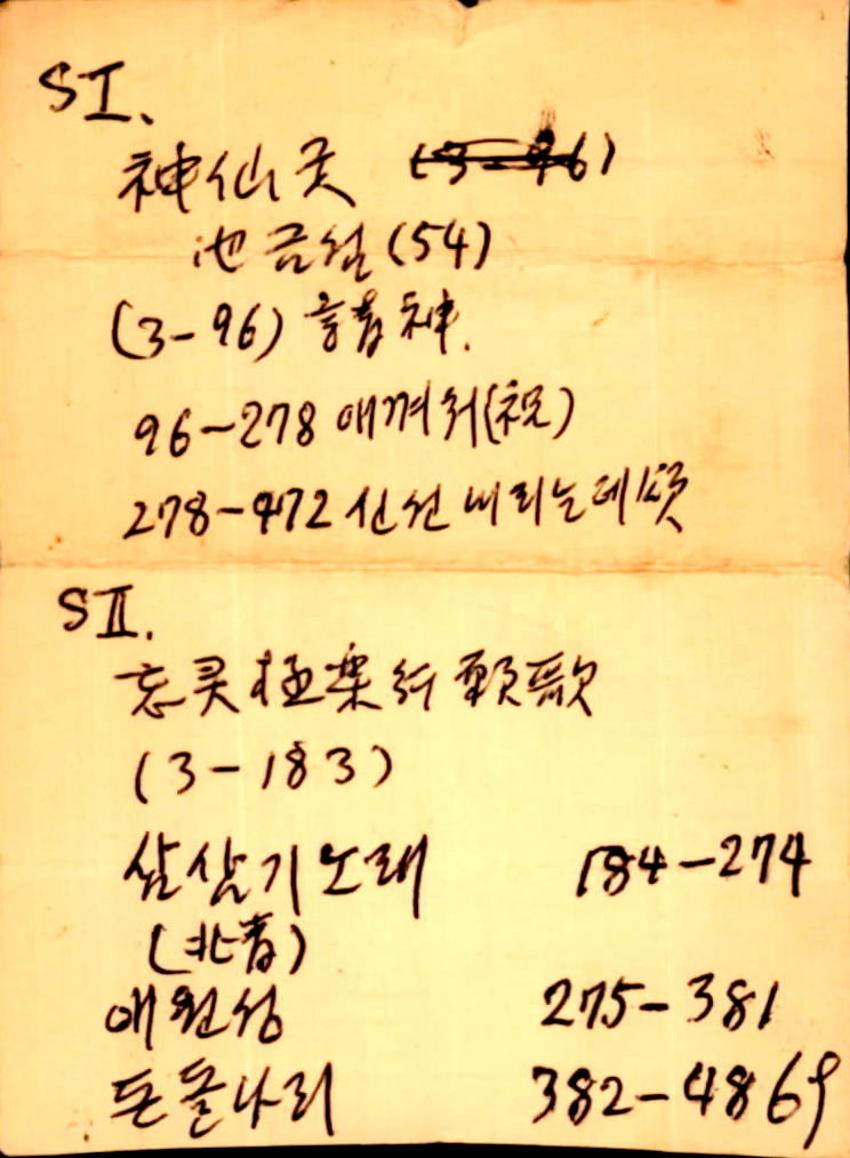 SⅠ.
神仙굿 (3-96)
池금선(54)
(3-96) 請神.
96-278 애껴처(祝)
278-472 신선 내리는데 頌
SⅡ.
忘灵極楽行願歌
(3-183)
삼삼기노래 184-274
(北青)
애원성 275-381
돈돌나리 382-486